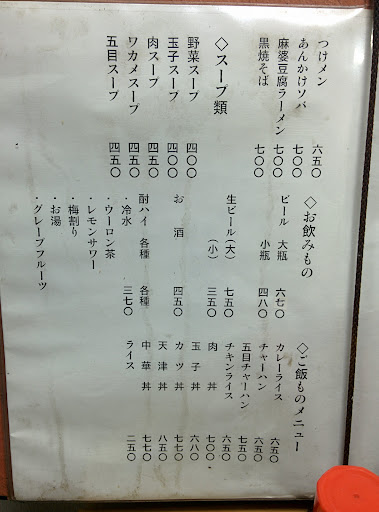 つけメン 六五〇
あんかけソバ 七〇〇
麻婆豆腐ラーメン 七〇〇
黒焼そば 七〇〇
◇スープ類
野菜スープ 四〇〇
玉子スープ 四〇〇
肉スープ 四五〇
ワカメスープ 四五〇
五目スープ 四五〇
◇お飲みもの
ビール 大瓶 六七〇
小瓶 四八〇
生ビール(大) 七五〇
(小) 三五〇
お酒 四五〇
酎ハイ 各種 各種
・冷水 三七〇
・ウーロン茶
・レモンサワー
・梅割り
・お湯
・グレープフルーツ
◇ご飯ものメニュー
カレーライス 六五〇
チャーハン 六五〇
五目チャーハン 七五〇
チキンライス 六五〇
肉丼 七〇〇
玉子丼 六八〇
カツ丼 七七〇
天津丼 八五〇
中華丼 七七〇
ライス 二五〇